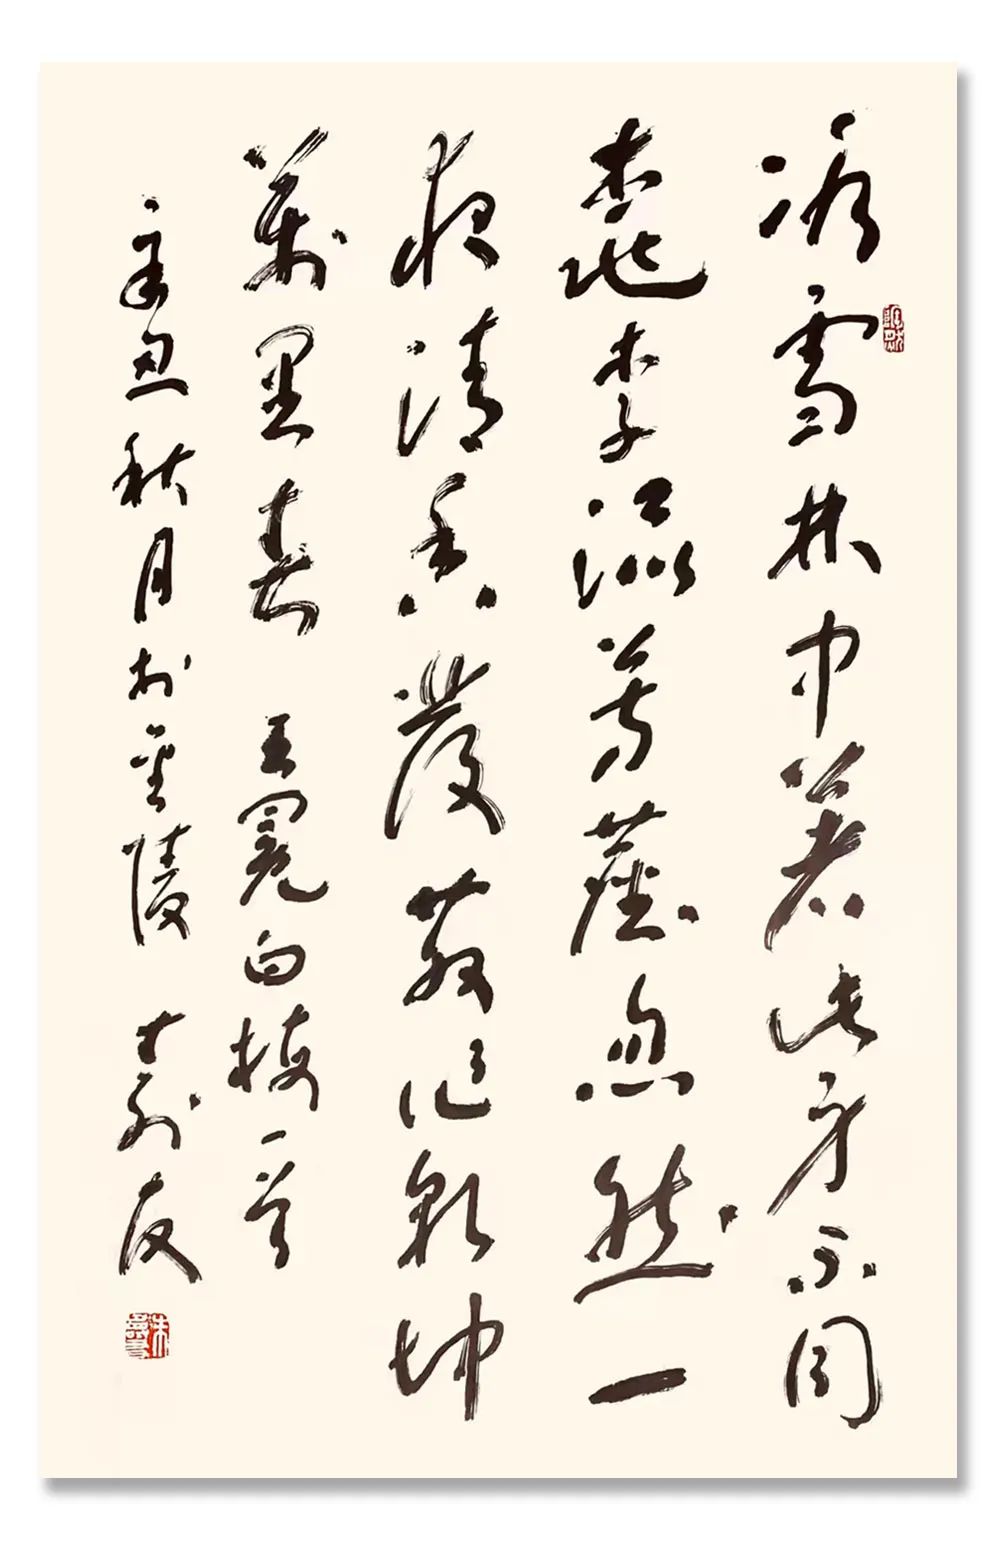 冰雪林中著此身不同
桃李混芳塵忽然一
夜清香發散作乾坤
萬里春 王冕白梅一首
辛丑秋月於金陵 壽友